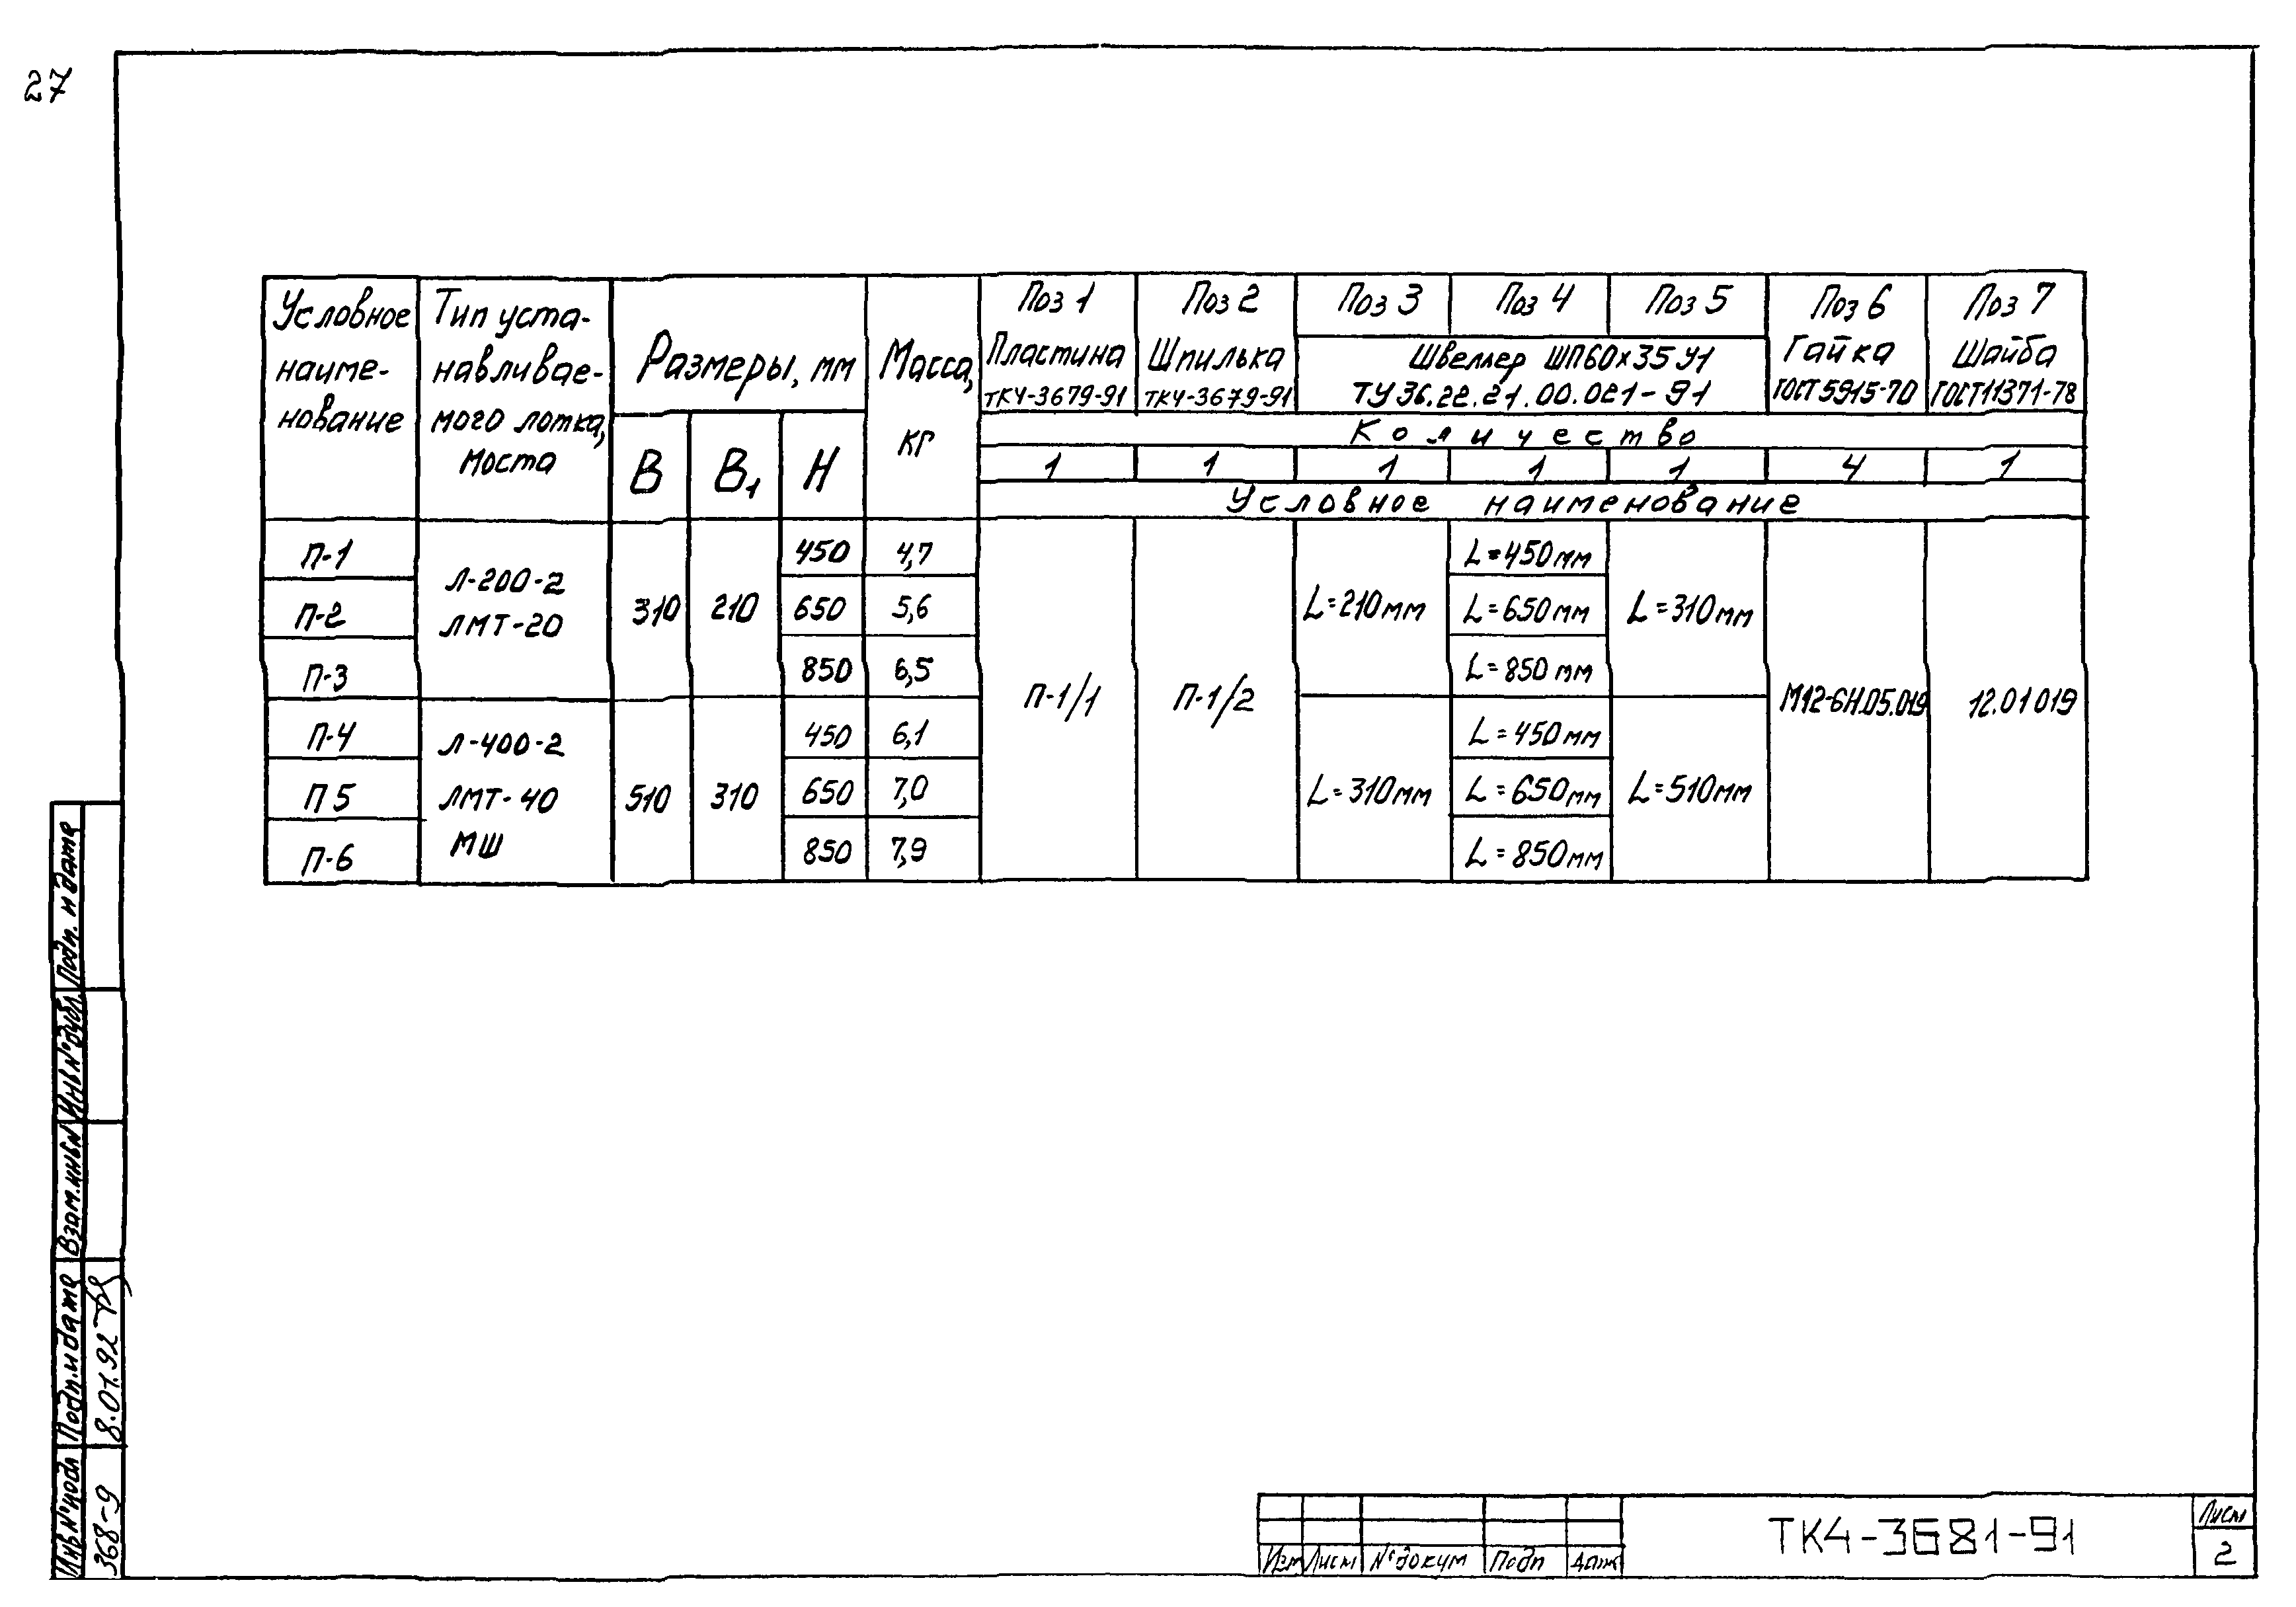 27
Условное наиме-нование
Тип уста-навливае-мого лотка, моста
Размеры, мм
B
B1
H
Масса, кг
Поз 1
Пластина
ТК4-3679-91
Поз 2
Шпилька
ТК4-3679-91
Поз 3
Поз 4
Поз 5
Швеллер ШП60х35 У1
ТУ36.22.21.00.021-91
Поз 6
Гайка
ГОСТ 5915-70
Поз 7
Шайба
ГОСТ11371-78
Количество
1 1 1 1 1 4 1
Условное наименование
П-1 450 4,7 L=450мм
Л-200-2
ЛМТ-20
П-2 310 210 650 5,6 L=210мм L=650мм L=310мм
П-3 850 6,5 L=850мм
П-1/1 П-1/2 М12-6Н.05.019 12.01 019
П-4 450 6,1 L=450мм
Л-400-2
ЛМТ-40
МШ
П 5 510 310 650 7,0 L=310мм L=650мм L=510мм
П-6 850 7,9 L=850мм
Подп. и дата
Инв N° дубл.
Взам. инв N
Подп. и дата
8.01.92
Инв N° подл
368-9
Изм Лист N° докум Подп Дата
ТК4-3681-91
Лист
2